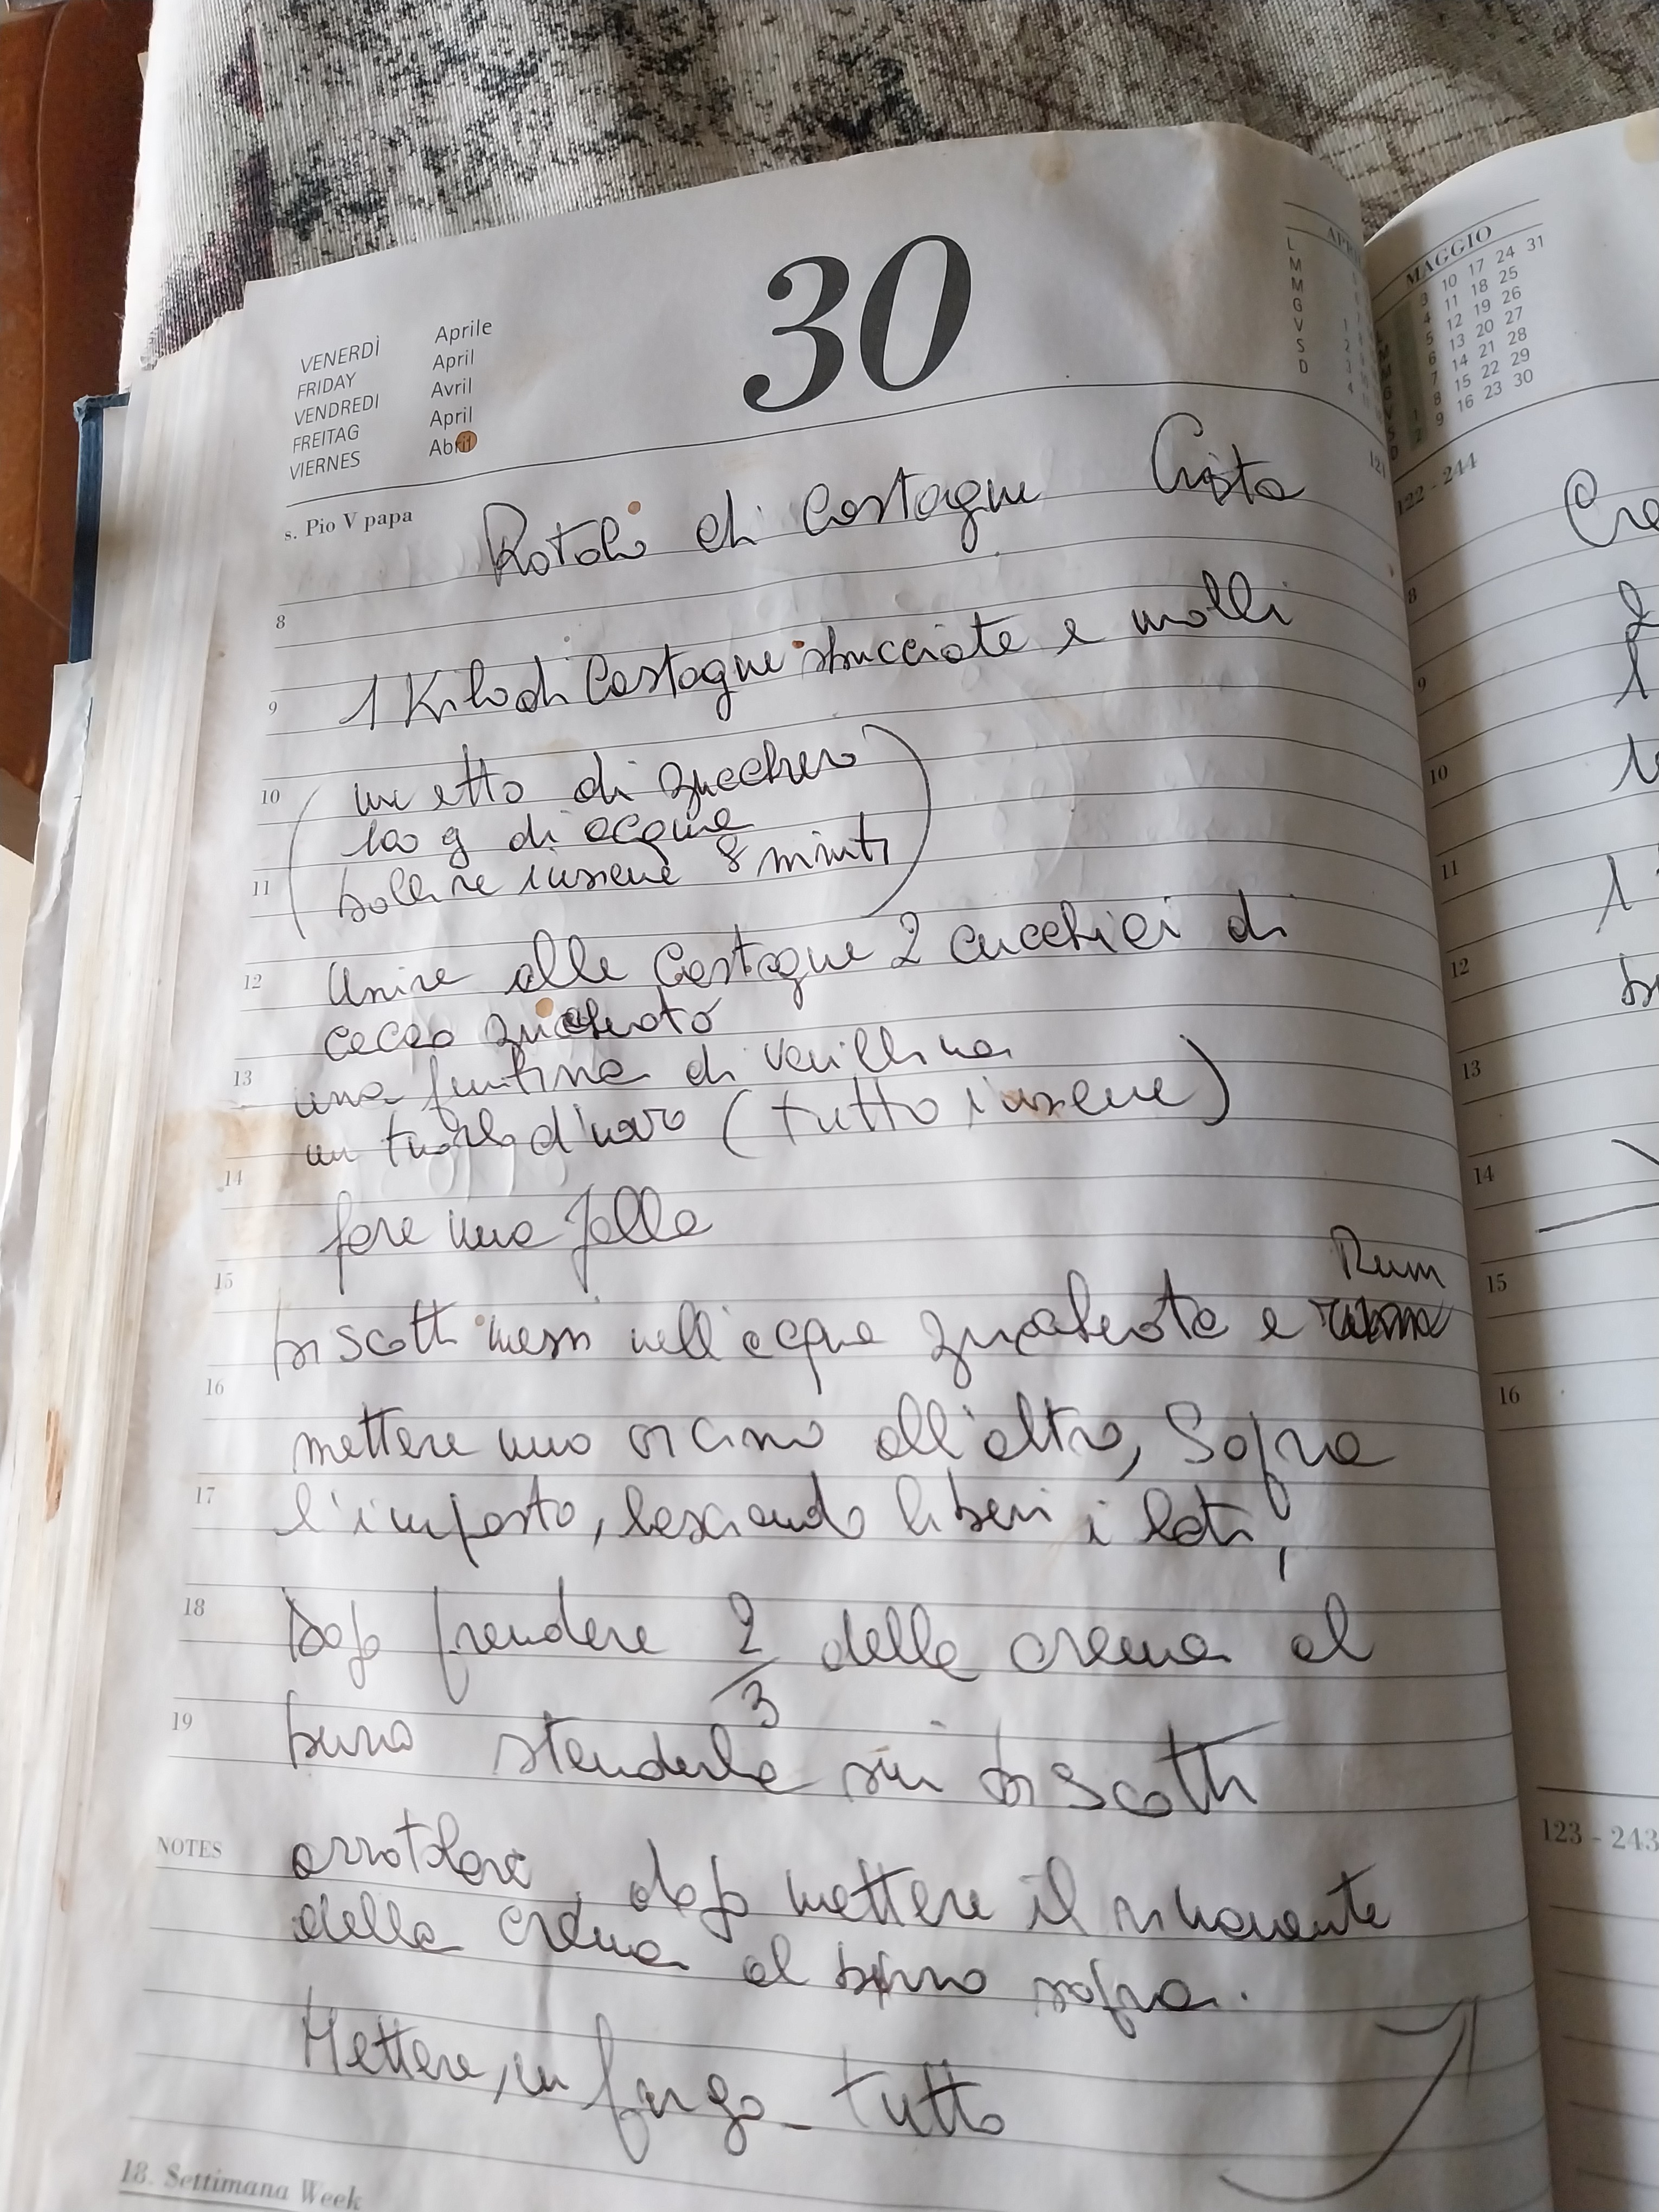 30
VENERDÌ Aprile
FRIDAY April
VENDREDI Avril
FREITAG April
VIERNES Abril
s. Pio V papa
APR
L
M
M
G
V 1
S 2
D 3
4
121
Rotolo di Castagne Crista
8
9 1 Kilo di Castagne sbucciate e molli
10 un etto di zucchero
100 g di acqua
11 bollire insieme 8 minuti
12 Unire alle Castagne 2 cucchiai di
cacao zuccherato
13 una puntina di vanillina
un tuorlo d'uovo (tutto insieme)
14
fare una palla
15 Rum
biscotti messi nell'acqua zuccherata e
16
mettere uno vicino all'altro, Sopra
17 l'impasto, lasciando liberi i lati,
18 Dopo prendere 2/3 della crema al
19 burro stenderla sui biscotti
NOTES arrotolare, dopo mettere il rimanente
della crema al burro sopra.
Mettere in frigo - tutto
18. Settimana Week
MAGGIO
3 10 17 24 31
4 11 18 25
5 12 19 26
6 13 20 27
7 14 21 28
1 8 15 22 29
2 9 16 23 30
122 - 244
Cre
8
2
9
1
10
11
1
12
13
14
15
16
123 - 243